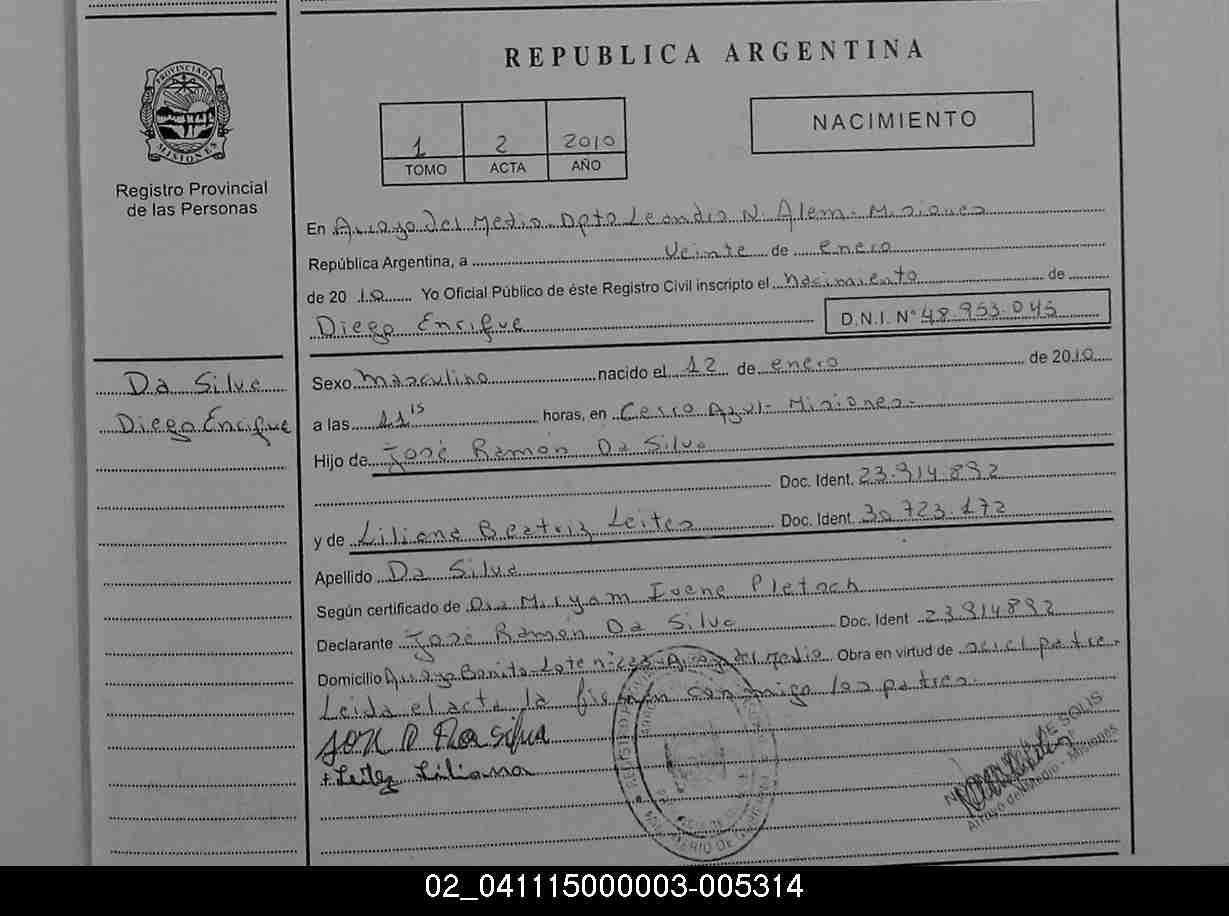 REPUBLICA ARGENTINA
PROVINCIA DE MISIONES
Registro Provincial
de las Personas
1 2 2010
TOMO ACTA AÑO
NACIMIENTO
En Arroyo del Medio Dpto Leandro N. Alem - Misiones
República Argentina, a veinte de enero
de 2010 Yo Oficial Público de éste Registro Civil inscripto el Nacimiento de
Diego Enrique D.N.I. N° 48.953.045
Da Silva
Diego Enrique
Sexo Masculino nacido el 12 de enero de 2010
a las 11 15 horas, en Cerro Azul - Misiones.
Hijo de José Ramón Da Silva
Doc. Ident. 23.914.892
y de Liliana Beatriz Leites Doc. Ident. 30.723.172
Apellido Da Silva
Según certificado de Dra Miryam Ivene Pletsch
Declarante José Ramón Da Silva Doc. Ident 23.914.892
Domicilio Arroyo Bonito Lote n° 223 - Arroyo del Medio Obra en virtud de ser el padre.
Leida el acta la firman conmigo los padres.
Da Silva
Leitez Liliana
DE SOLIS
Arroyo del Medio - Misiones
02_041115000003-005314